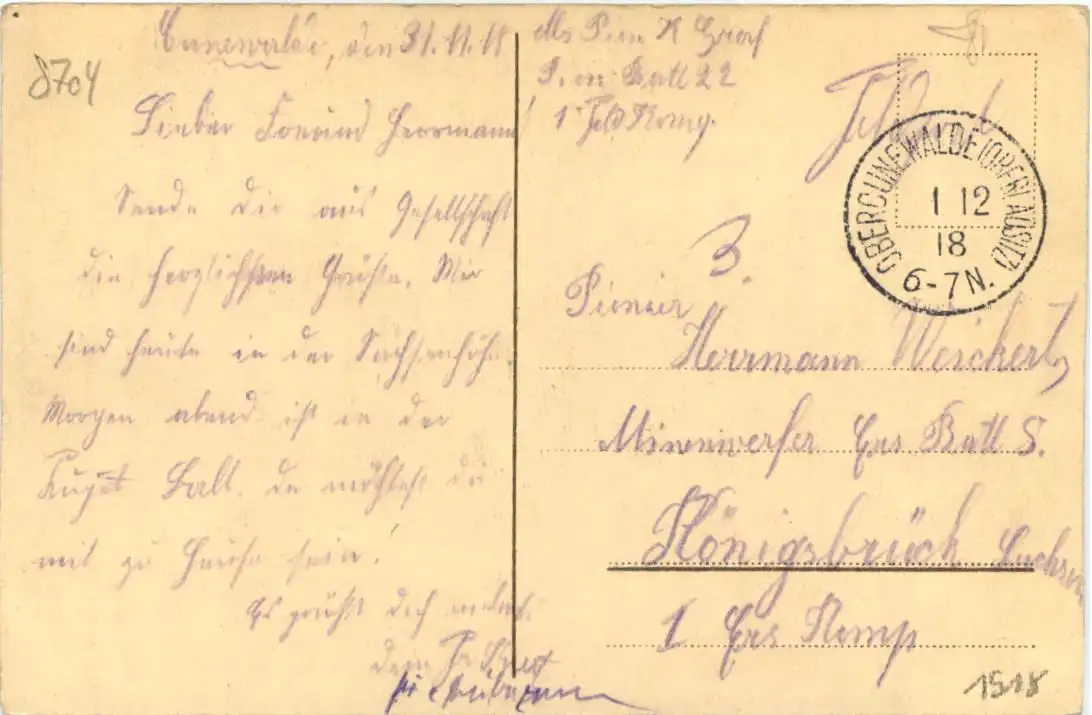 8704
Cunewalde, den 31.11.18
Lieber Freund Herrmann!
Sende dir aus Gesellschaft
die herzlichsten Grüße. Wir
sind heute in der Sachsenhöhe.
Morgen abend ist in der
Ball, da möchtest du
mit zu Hause sein!
Es grüßt dich
dein Fr
Abs Pion K Graf
Pion Batl 22
1 Feld Komp.
Feldpost
OBERCUNEWALDE (OBERLAUSITZ)
1 12
18
6-7N.
3.
Pionier
Herrmann Weickert,
Minenwerfer Ers Batl 5.
Königsbrück Sachsen
1 Ers Komp
1518